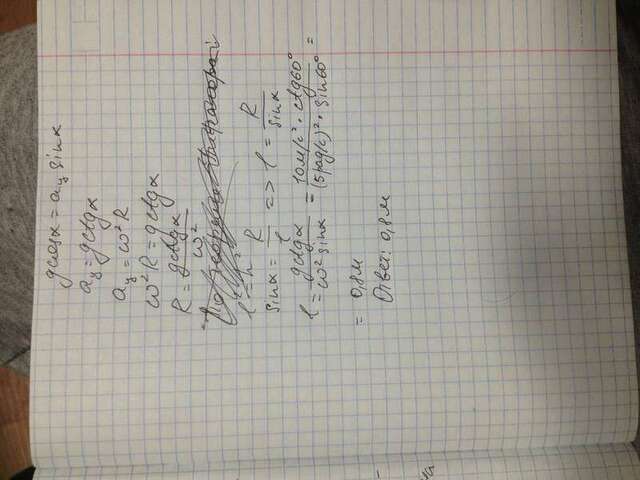 gcosα = aᵧ sinα
aᵧ = gctgα
aᵧ = ω²R
ω²R = gctgα
R = gctgα / ω²
sinα = R / l => l = R / sinα
l = gctgα / ω² sinα = 10м/с² · ctg60° / (5рад/с)² · sin60° =
= 0,8м
Ответ: 0,8м